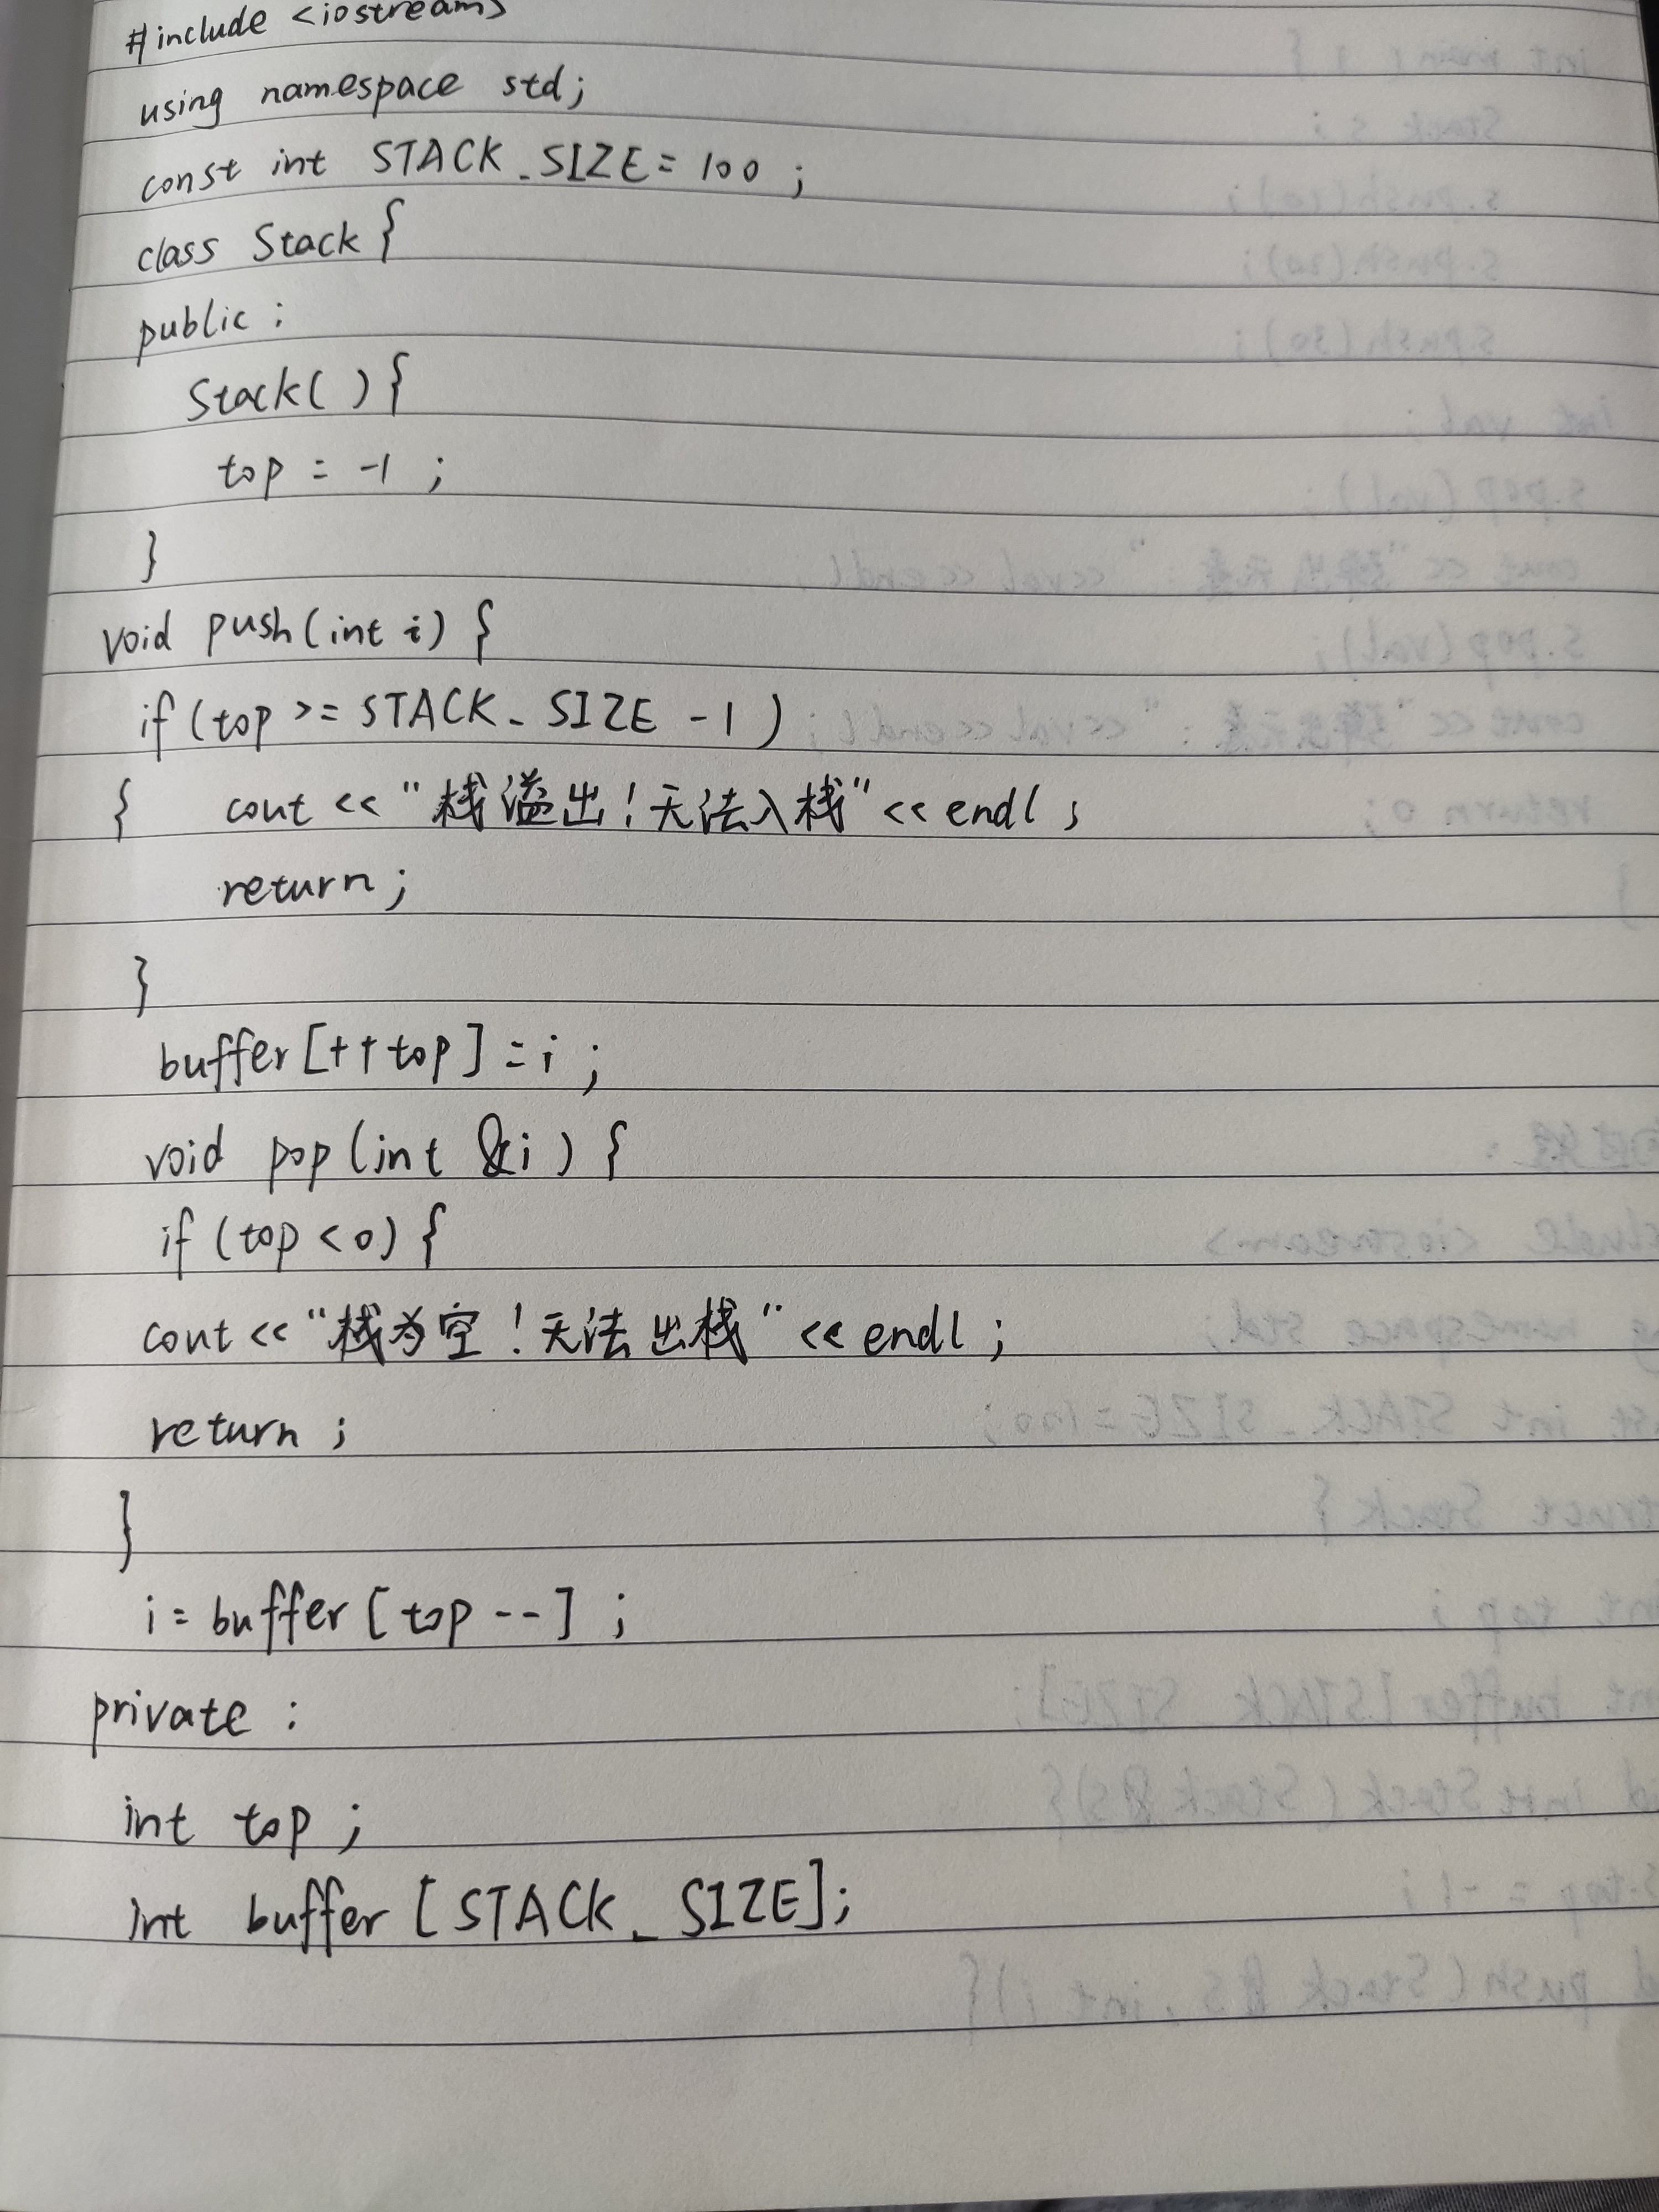 #include <iostream>
using namespace std;
const int STACK_SIZE = 100 ;
class Stack {
public :
Stack( ) {
top = -1 ;
}
void push(int i) {
if (top >= STACK_SIZE -1 )
{ cout << "栈溢出！无法入栈" << endl ;
return ;
}
buffer [++top] = i ;
void pop (int &i ) {
if (top < 0) {
cout << "栈为空！无法出栈" << endl ;
return ;
}
i = buffer [ top -- ] ;
private :
int top ;
int buffer [ STACK_SIZE];